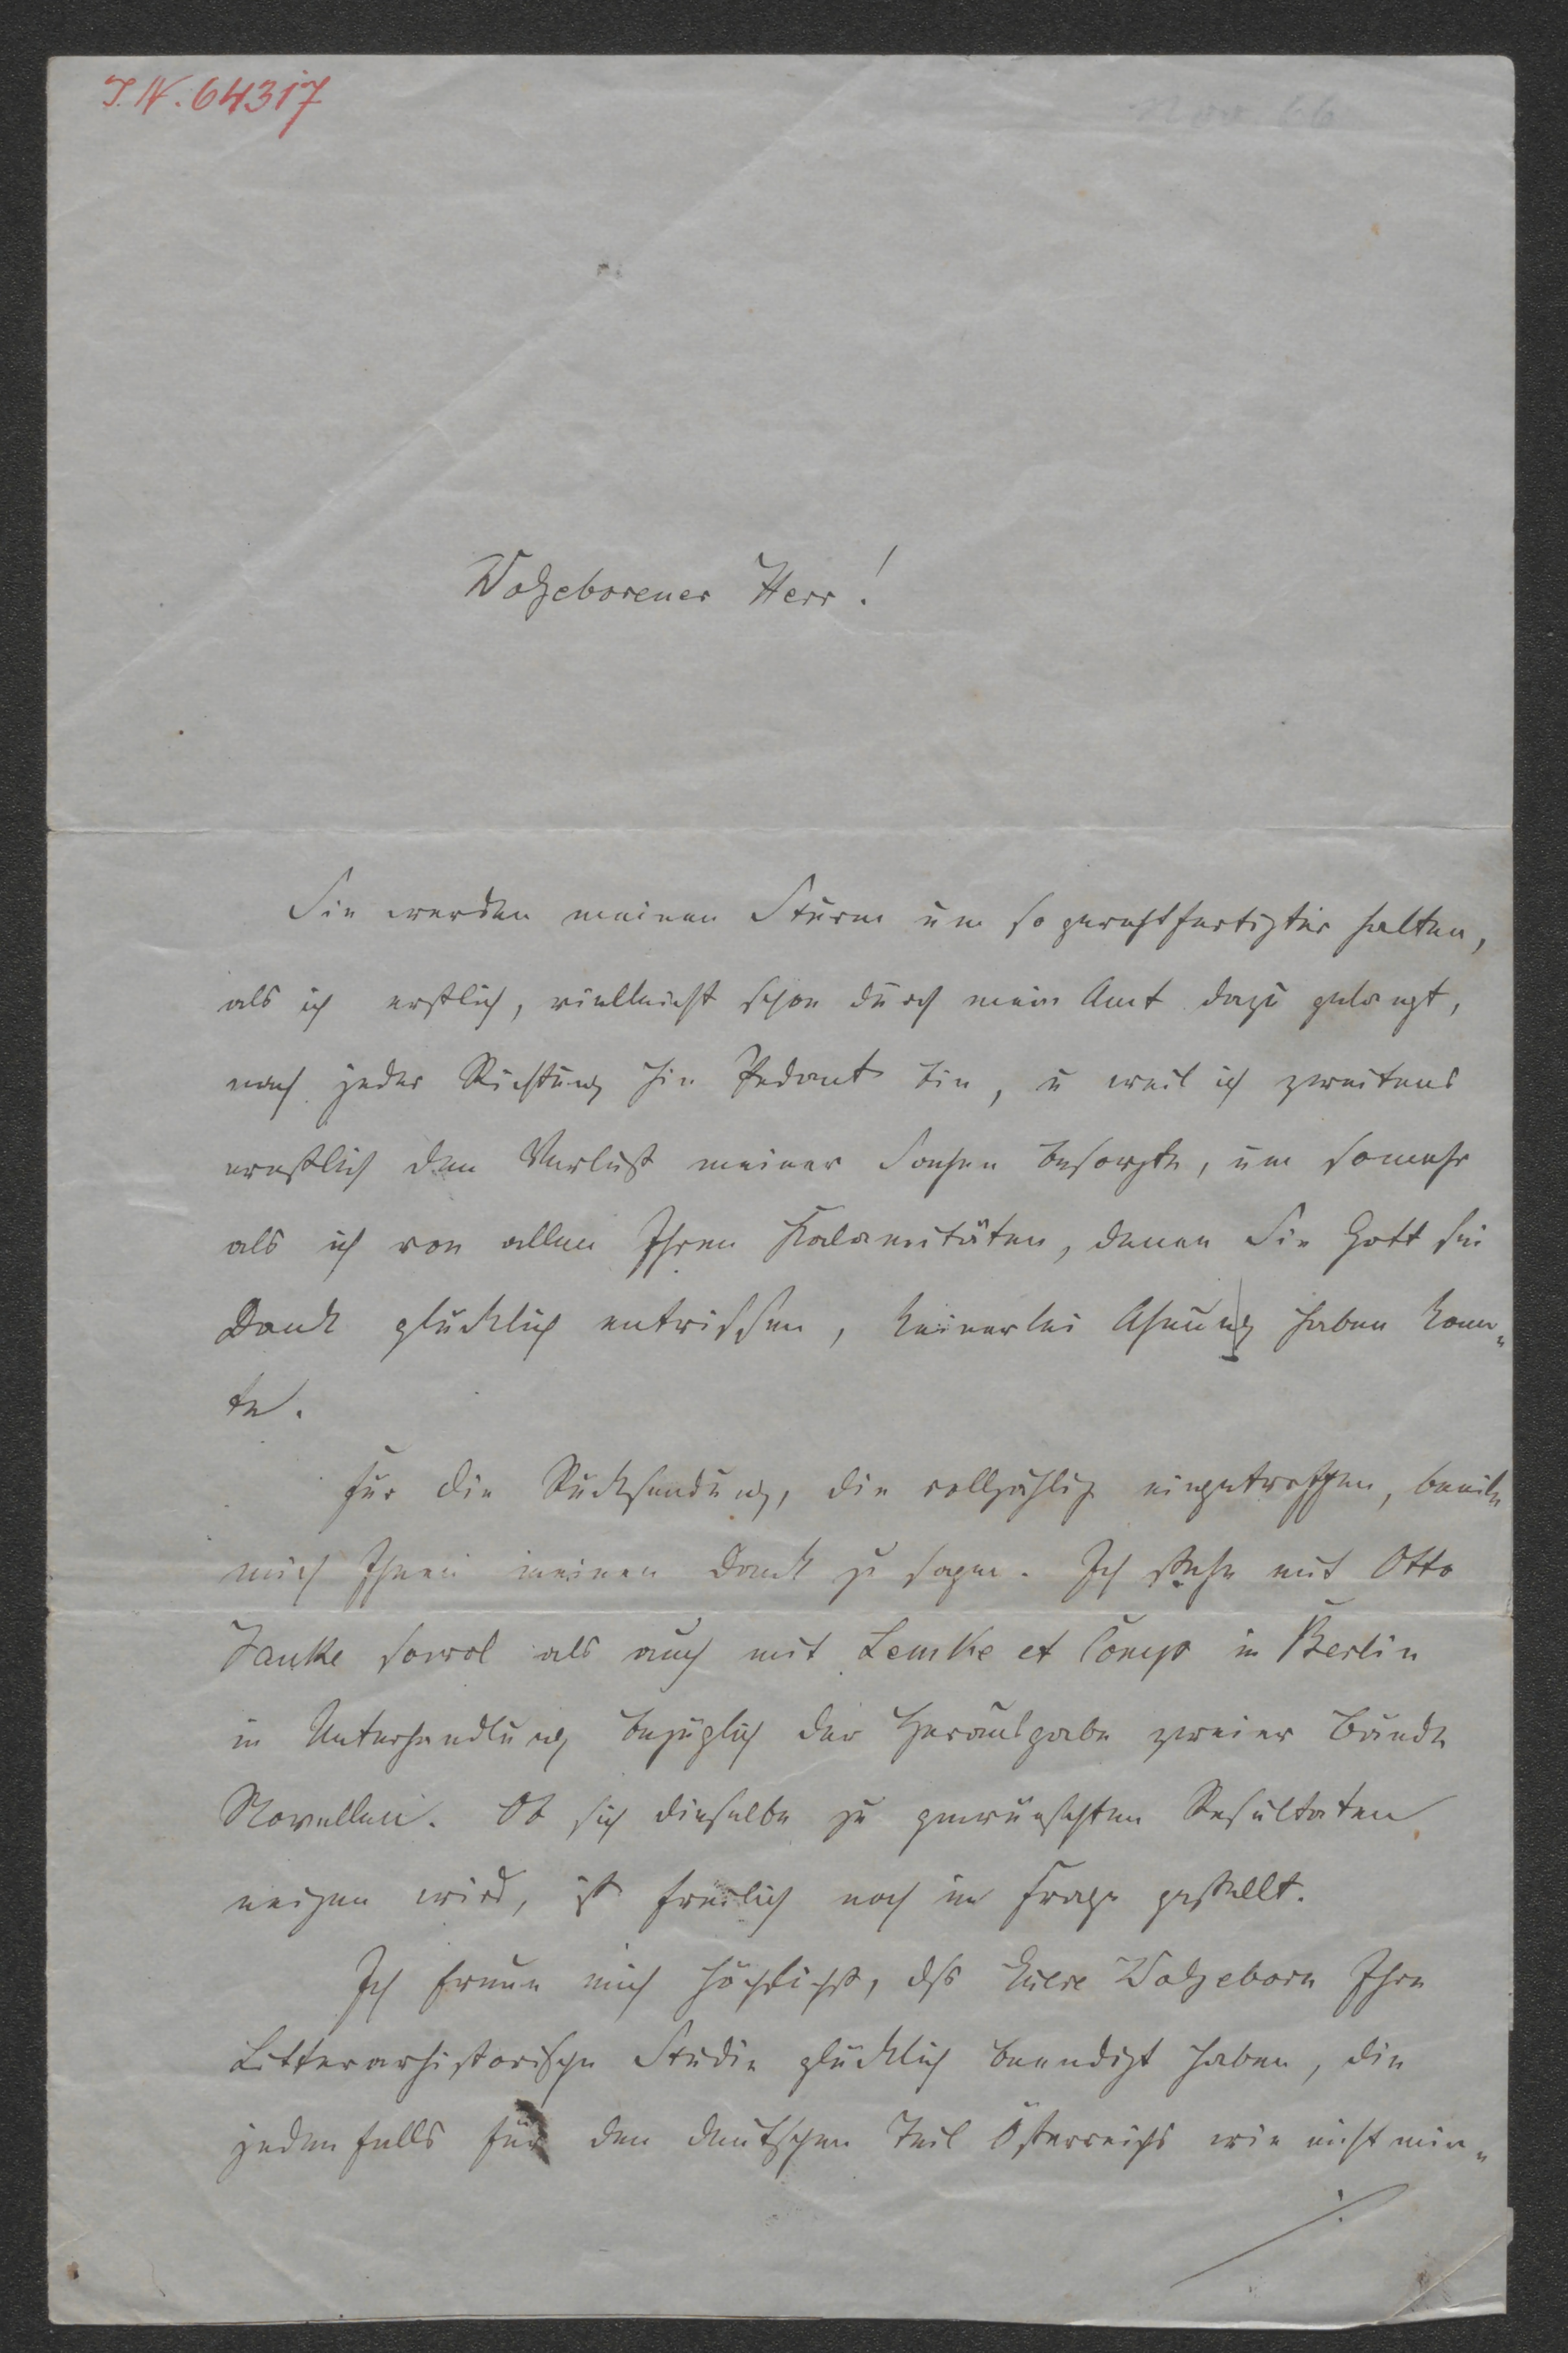 I.N. 64317
Nov. 66
Wolgeborener Herr!
Sie werden meinen Sturm um so gerechtfertigter halten,
als ich erstlich, vielleicht schon durch mein Amt dazu gelangt,
nach jeder Richtung hin Pedant bin, u weil ich zweitens
ernstlich den Verlust meiner Sachen besorgte, um somehr
als ich von allen Ihren Kalamitäten, denen Sie Gott sei
Dank glücklich entrissen, keinerlei Ahnung haben konn„
te.
Für die Rücksendung, die vollzählig eingetroffen, beeile
mich Ihnen meinen Dank zu sagen. Ich stehe mit Otto
Janke sowol als auch mit Lemke et Comp in Berlin
in Unterhandlung bezüglich der Herausgabe zweier Bände
Novellen. Ob sich dieselbe zu gewünschten Resultaten
neigen wird, ist freilich noch in Frage gestellt.
Ich freue mich höchlichst, dß Euere Wolgeborn Ihre
Litterarhistorische Studie glücklich beendigt haben, die
jedenfalls für den deutschen Teil Österreichs wie nicht min„
./.